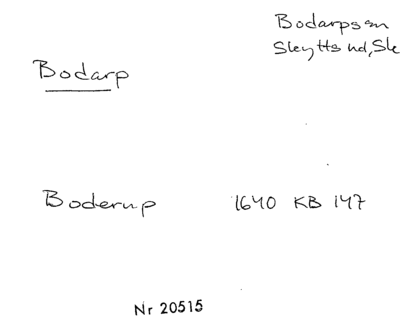 Bodarps sn
Skytts hd, Sk
Bodarp
Boderup 1640 KB 147
Nr 20515